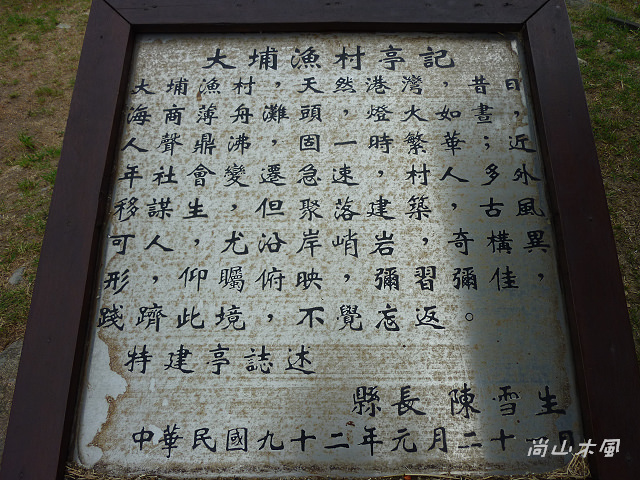 大埔漁村亭記
大埔漁村，天然港灣，昔日
海商薄舟灘頭，燈火如晝；
人聲鼎沸，固一時繁華，近
年社會變遷急速，村人多外
移謀生，但聚落建築，古風
可人，尤沿岸峭岩，奇構異
形，仰矚俯映，彌習彌佳，
踐躋此境，不覺忘返。
特建亭誌述
縣長 陳雪生
中華民國九十二年元月二十一日
尚山木風